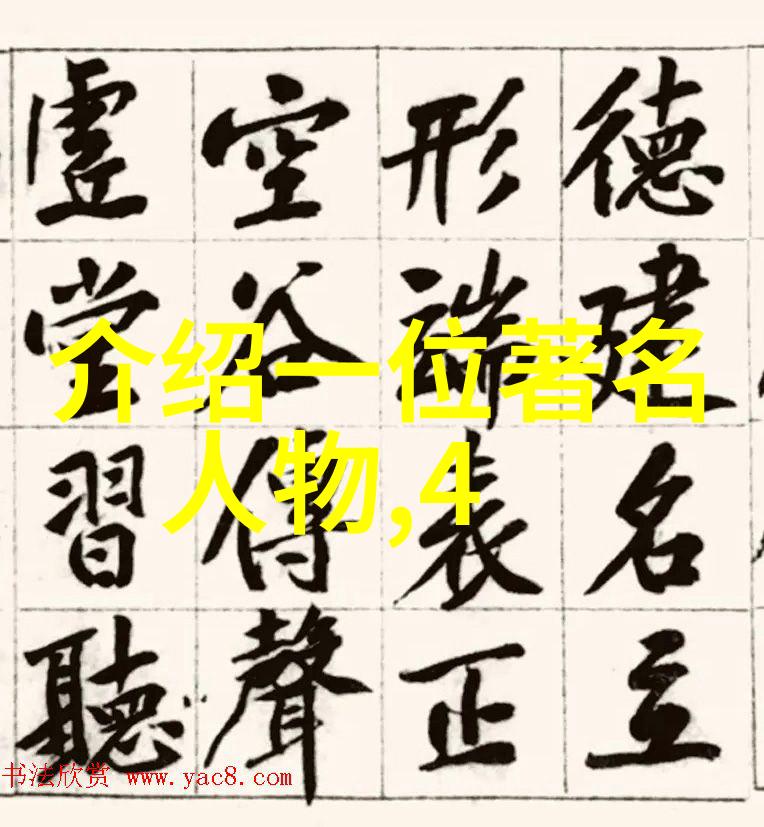 德建名立
形端表正
空谷傳聲
虛堂習聽
介绍一位著名
人物,4
书法欣赏 www.yac8.com